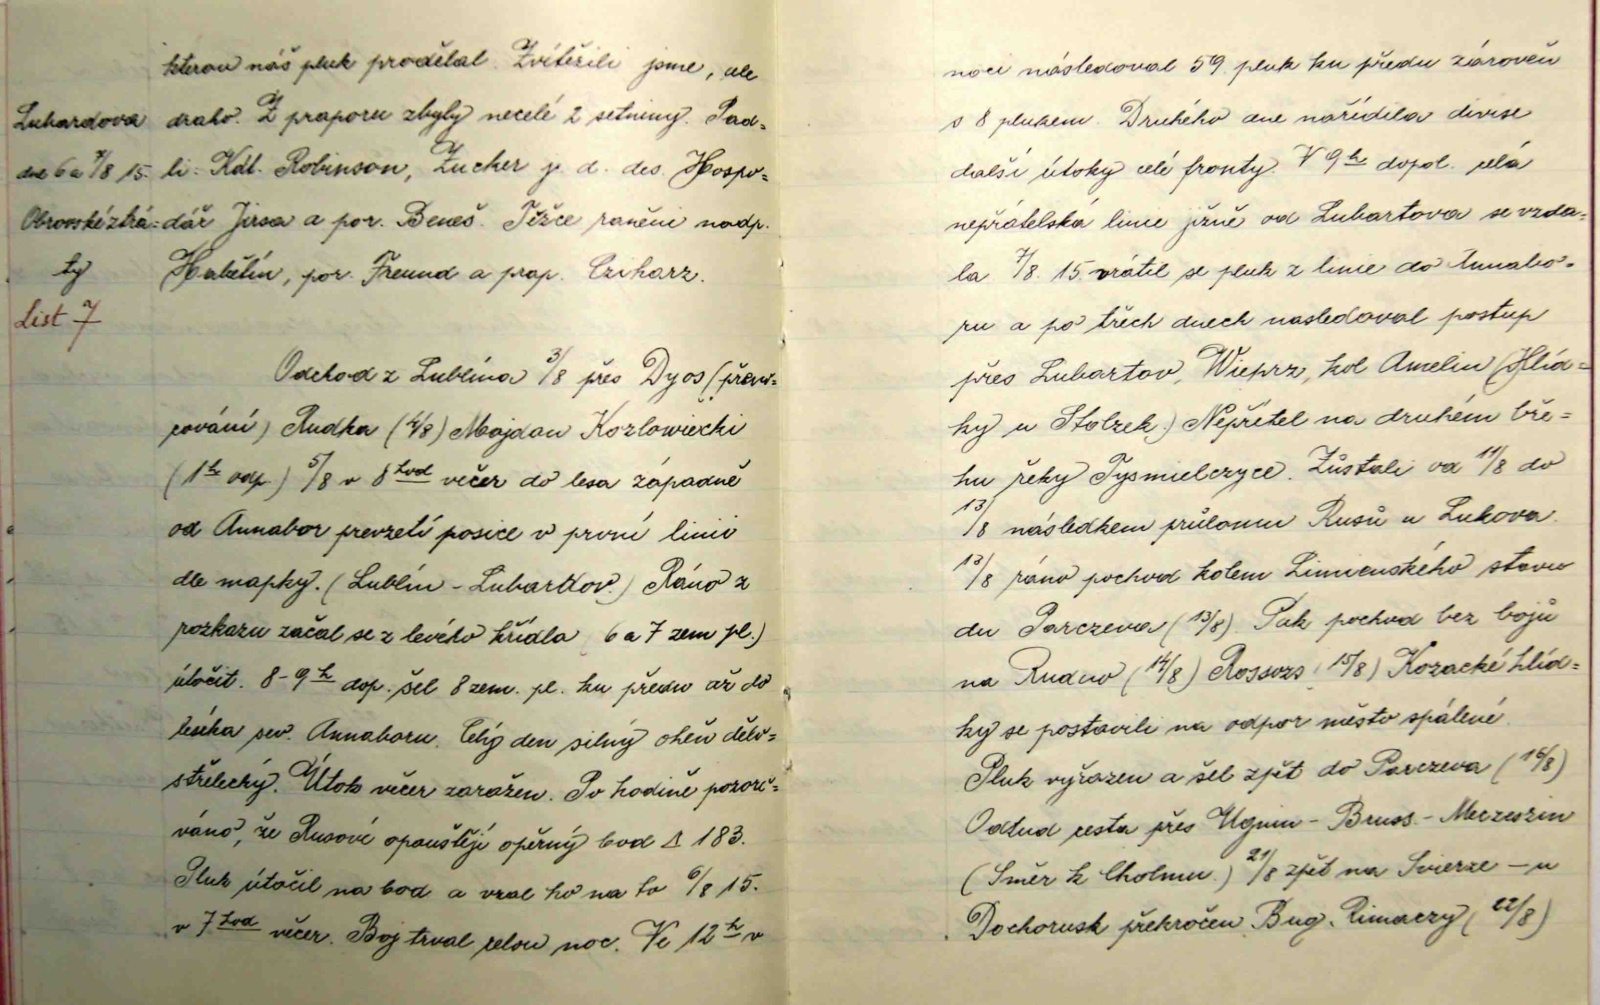 kterou náš pluk prodělal. Zvítězili jsme, ale
Lubardova draho. Z praporu zbyly necelé 2 setniny. Pad-
dne 6 a 7/8 15. li: Kdt. Robinson, Zucher j. d. des. Hospo-
Obrovské ztrá- dář Jirsa a por. Beneš. Těžce raněni nadp.
ty Habětín, por. Freund a prap. Cziharz.
List 7
Odchod z Lublína 3/8 přes Dyos (převi-
cování) Rudka (4/8) Majdan Kozlowiecki
(1h odp.) 5/8 v 8 hod večer do lesa západně
od Annabor prevzetí posice v první linii
dle mapky. (Lublín - Lubartov.) Ráno z
rozkazu začal se z levého křídla (6 a 7 zem pl.)
útočit. 8-9h dop. šel 8 zem. pl. ku předu až do
lesíka sev. Annaboru. Celý den silný oheň dělo-
střelecký. Útok večer zaražen. Po hodině pozoro-
váno, že Rusové opouštějí opěrný bod Δ 183.
Pluk útočil na bod a vzal ho na to 6/8 15.
v 7 hod večer. Boj trval celou noc. Ve 12h v
noci následoval 59. pluk ku předu zároveň
s 8 plukem. Druhého dne nařídila divise
další útoky celé fronty. V 9h dopol. celá
nepřátelská linie jižně od Lubartova se vzda-
la 7/8. 15. vrátil se pluk z linie do Annabo-
ru a po třech dnech nasledoval postup
přes Lubartov, Wieprz, kol Amelin (Hlíd-
ky u Stolzek.) Nepřítel na druhém bře-
hu řeky Tysmielczyce. Zůstali od 11/8 do
13/8 následkem průlomu Rusů u Lukova.
13/8 ráno pochod kolem Limienského stavu
du Parczeva (13/8). Pak pochod bez bojů
na Rudno (14/8) Rossozs (15/8) Kozacké hlíd-
ky se postavili na odpor město spálené.
Pluk vyřazen a šel zpět do Parczeva (16/8)
Odtud cesta přes Uginin - Bruss - Merzeszin
(Směr k Cholmu.) 21/8 zpět na Svierze - u
Dochorusk překročen Bug. Rimaczy (22/8)